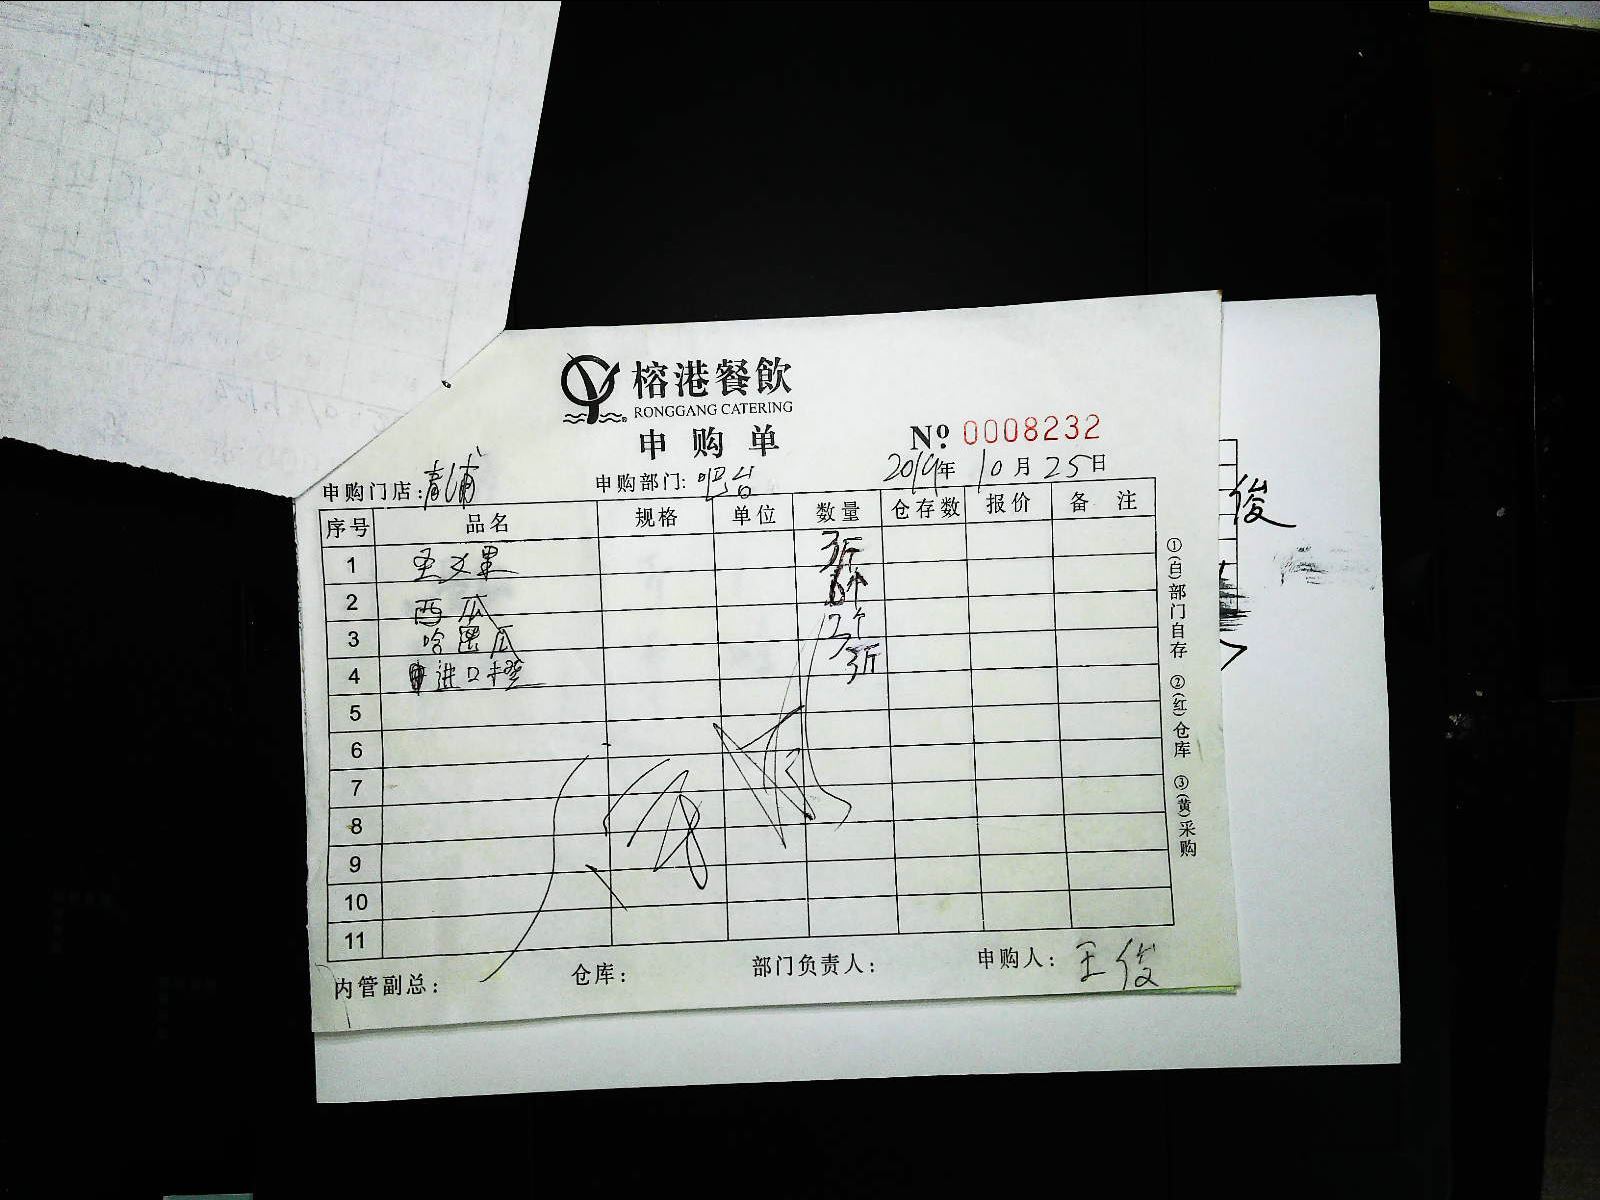 榕港餐飲
RONGGANG CATERING
申购单
No 0008232
申购门店：青浦 申购部门：吧台 2019年10月25日
序号 品名 规格 单位 数量 仓存数 报价 备注
1 圣女果 3斤
2 西瓜 6个
3 哈密瓜 2个
4 进口橙 3斤
5
6
7
8
9
10
11
内管副总： 仓库： 部门负责人： 申购人：王俊
①(白)部门自存 ②(红)仓库 ③(黄)采购
俊